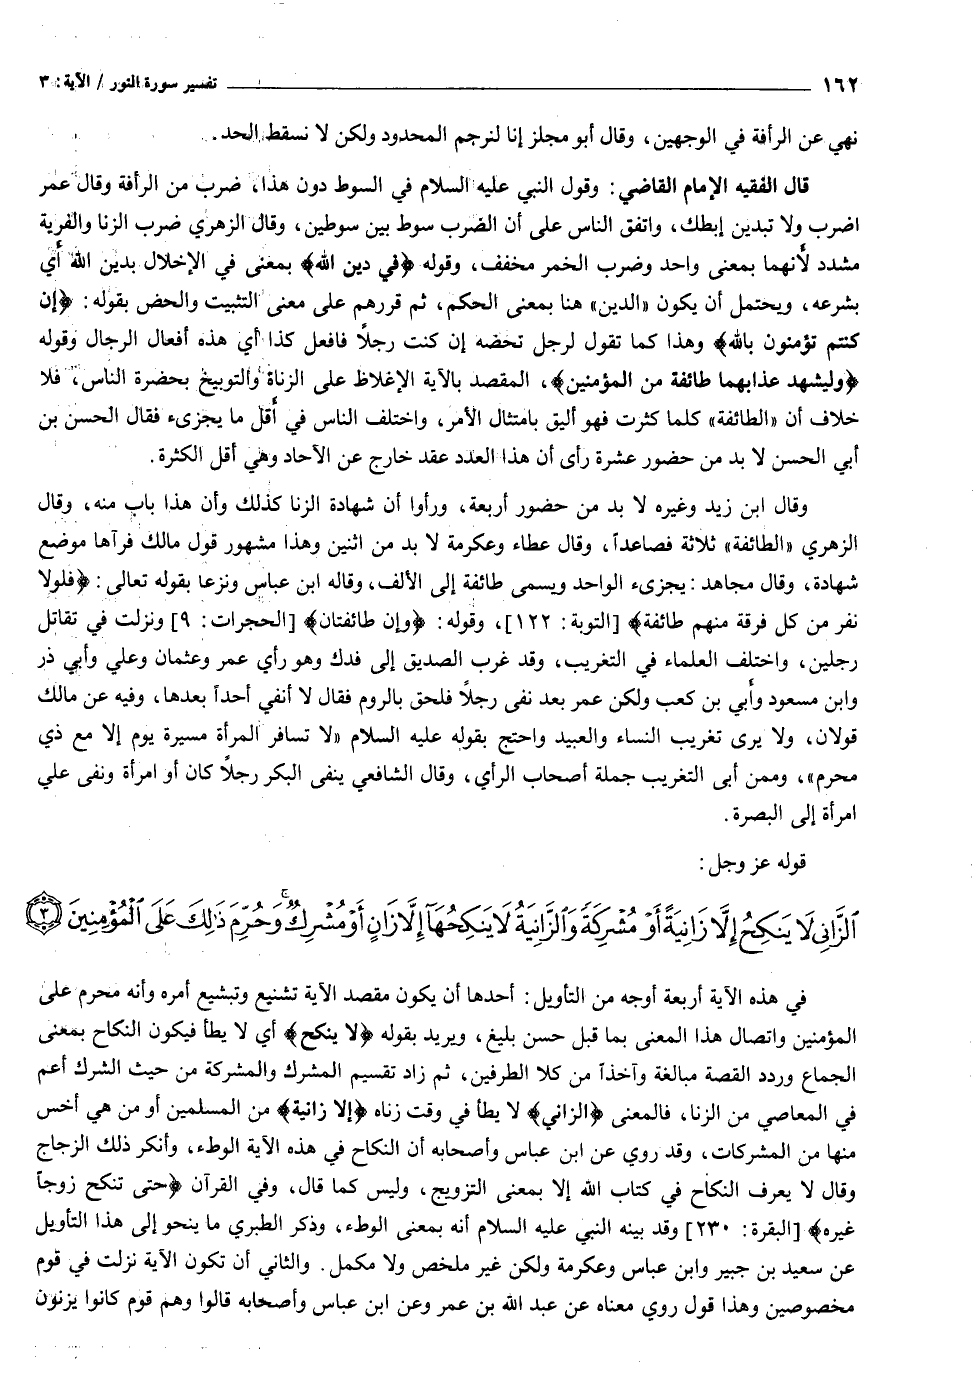 ١٦٢ تفسير سورة النور / الآية: ٣
نهي عن الرأفة في الوجهين، وقال أبو مجلز إنا لنرجم المحدود ولكن لا نسقط الحد.
قال الفقيه الإمام القاضي: وقول النبي عليه السلام في السوط دون هذا، ضرب من الرأفة وقال عمر
اضرب ولا تبدين إبطك، واتفق الناس على أن الضرب سوط بين سوطين، وقال الزهري ضرب الزنا والفرية
مشدد لأنهما بمعنى واحد وضرب الخمر مخفف، وقوله ﴿في دين الله﴾ بمعنى في الإخلال بدين الله أي
بشرعه، ويحتمل أن يكون «الدين» هنا بمعنى الحكم، ثم قررهم على معنى التثبيت والحض بقوله: ﴿إن
كنتم تؤمنون بالله﴾ وهذا كما تقول لرجل تحضه إن كنت رجلاً فافعل كذا أي هذه أفعال الرجال وقوله
﴿وليشهد عذابهما طائفة من المؤمنين﴾، المقصد بالآية الإغلاظ على الزناة والتوبيخ بحضرة الناس، فلا
خلاف أن «الطائفة» كلما كثرت فهو أليق بامتثال الأمر، واختلف الناس في أقل ما يجزىء فقال الحسن بن
أبي الحسن لا بد من حضور عشرة رأى أن هذا العدد عقد خارج عن الآحاد وهي أقل الكثرة.
وقال ابن زيد وغيره لا بد من حضور أربعة، ورأوا أن شهادة الزنا كذلك وأن هذا باب منه، وقال
الزهري «الطائفة» ثلاثة فصاعداً، وقال عطاء وعكرمة لا بد من اثنين وهذا مشهور قول مالك فرآها موضع
شهادة، وقال مجاهد: يجزىء الواحد ويسمى طائفة إلى الألف، وقاله ابن عباس ونزعا بقوله تعالى: ﴿فلولا
نفر من كل فرقة منهم طائفة﴾ [التوبة: ١٢٢]، وقوله: ﴿وإن طائفتان﴾ [الحجرات: ٩] ونزلت في تقاتل
رجلين، واختلف العلماء في التغريب، وقد غرب الصديق إلى فدك وهو رأي عمر وعثمان وعلي وأبي ذر
وابن مسعود وأبي بن كعب ولكن عمر بعد نفى رجلاً فلحق بالروم فقال لا أنفي أحداً بعدها، وفيه عن مالك
قولان، ولا يرى تغريب النساء والعبيد واحتج بقوله عليه السلام «لا تسافر المرأة مسيرة يوم إلا مع ذي
محرم»، وممن أبى التغريب جملة أصحاب الرأي، وقال الشافعي ينفى البكر رجلاً كان أو امرأة ونفى علي
امرأة إلى البصرة.
قوله عز وجل:
ٱلزَّانِى لَا يَنكِحُ إِلَّا زَانِيَةً أَوْ مُشْرِكَةً وَٱلزَّانِيَةُ لَا يَنكِحُهَآ إِلَّا زَانٍ أَوْ مُشْرِكٌ ۚ وَحُرِّمَ ذَٰلِكَ عَلَى ٱلْمُؤْمِنِينَ ٣
في هذه الآية أربعة أوجه من التأويل: أحدها أن يكون مقصد الآية تشنيع وتبشيع أمره وأنه محرم على
المؤمنين واتصال هذا المعنى بما قبل حسن بليغ، ويريد بقوله ﴿لا ينكح﴾ أي لا يطأ فيكون النكاح بمعنى
الجماع وردد القصة مبالغة وآخذاً من كلا الطرفين، ثم زاد تقسيم المشرك والمشركة من حيث الشرك أعم
في المعاصي من الزنا، فالمعنى ﴿الزاني﴾ لا يطأ في وقت زناه ﴿إلا زانية﴾ من المسلمين أو من هي أخس
منها من المشركات، وقد روي عن ابن عباس وأصحابه أن النكاح في هذه الآية الوطء، وأنكر ذلك الزجاج
وقال لا يعرف النكاح في كتاب الله إلا بمعنى التزويج، وليس كما قال، وفي القرآن ﴿حتى تنكح زوجاً
غيره﴾ [البقرة: ٢٣٠] وقد بينه النبي عليه السلام أنه بمعنى الوطء، وذكر الطبري ما ينحو إلى هذا التأويل
عن سعيد بن جبير وابن عباس وعكرمة ولكن غير ملخص ولا مكمل. والثاني أن تكون الآية نزلت في قوم
مخصوصين وهذا قول روي معناه عن عبد الله بن عمر وعن ابن عباس وأصحابه قالوا وهم قوم كانوا يزنون